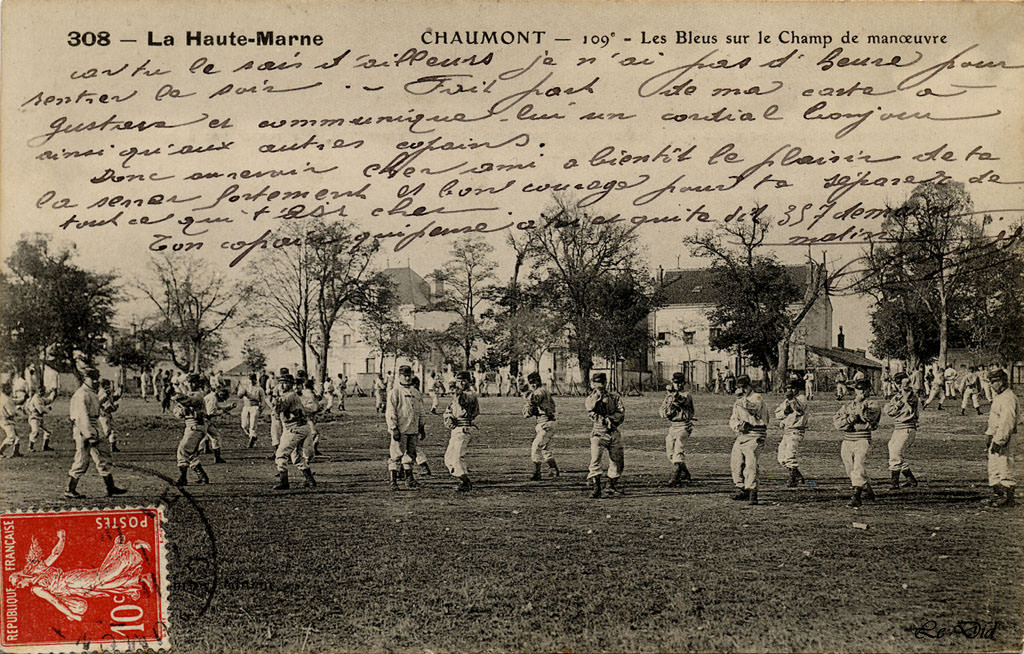 308 — La Haute-Marne
CHAUMONT — 109e - Les Bleus sur le Champ de manœuvre
car tu le sais d'ailleurs je n'ai pas d'heure pour
rentrer le soir. -- Fait part de ma carte a
Gustave et communique-lui un cordial bonjour
ainsi qu'aux autres copains.
Donc au revoir cher ami a bientôt le plaisir de te
la serrer fortement et bon courage pour te séparer de
tout ce qui t'est cher
Ton copain qui pense a et quitte dit 357 demain
matin
POSTES
REPUBLIQUE FRANÇAISE
10c
Le Did